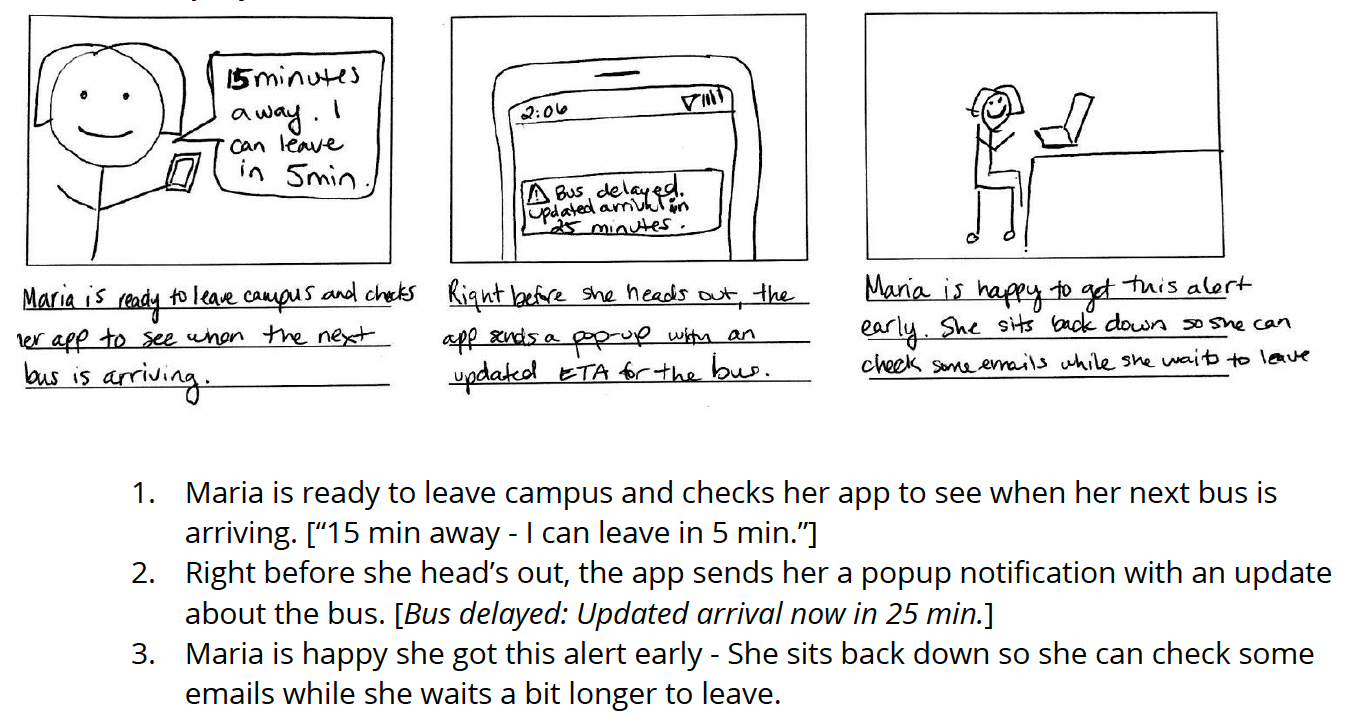 15 minutes
away. I
can leave
in 5min.
Maria is ready to leave campus and checks
her app to see when the next
bus is arriving.
2:06
⚠ Bus delayed.
updated arrival in
25 minutes.
Right before she heads out, the
app sends a pop-up with an
updated ETA for the bus.
Maria is happy to get this alert
early. She sits back down so she can
check some emails while she waits to leave
1. Maria is ready to leave campus and checks her app to see when her next bus is
arriving. [“15 min away - I can leave in 5 min.”]
2. Right before she head’s out, the app sends her a popup notification with an update
about the bus. [Bus delayed: Updated arrival now in 25 min.]
3. Maria is happy she got this alert early - She sits back down so she can check some
emails while she waits a bit longer to leave.